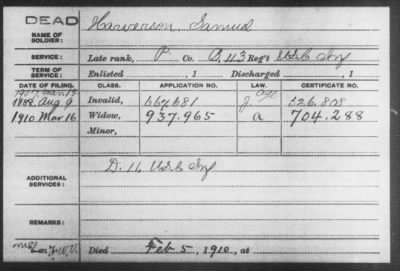 DEAD
NAME OF SOLDIER: Harverson, Samuel
SERVICE: Late rank, P. Co. D, 43 Reg't U.S.C Inf
TERM OF SERVICE: Enlisted , 1 Discharged , 1
DATE OF FILING. CLASS. APPLICATION NO. LAW. CERTIFICATE NO.
1888 Aug 9 Invalid, 667.681 age
1910 Mar 16 Widow, 937.965 a 704.288
Minor,
ADDITIONAL SERVICES: D. 11, U.S.C Inf
REMARKS:
Died Feb 5, 1910, at